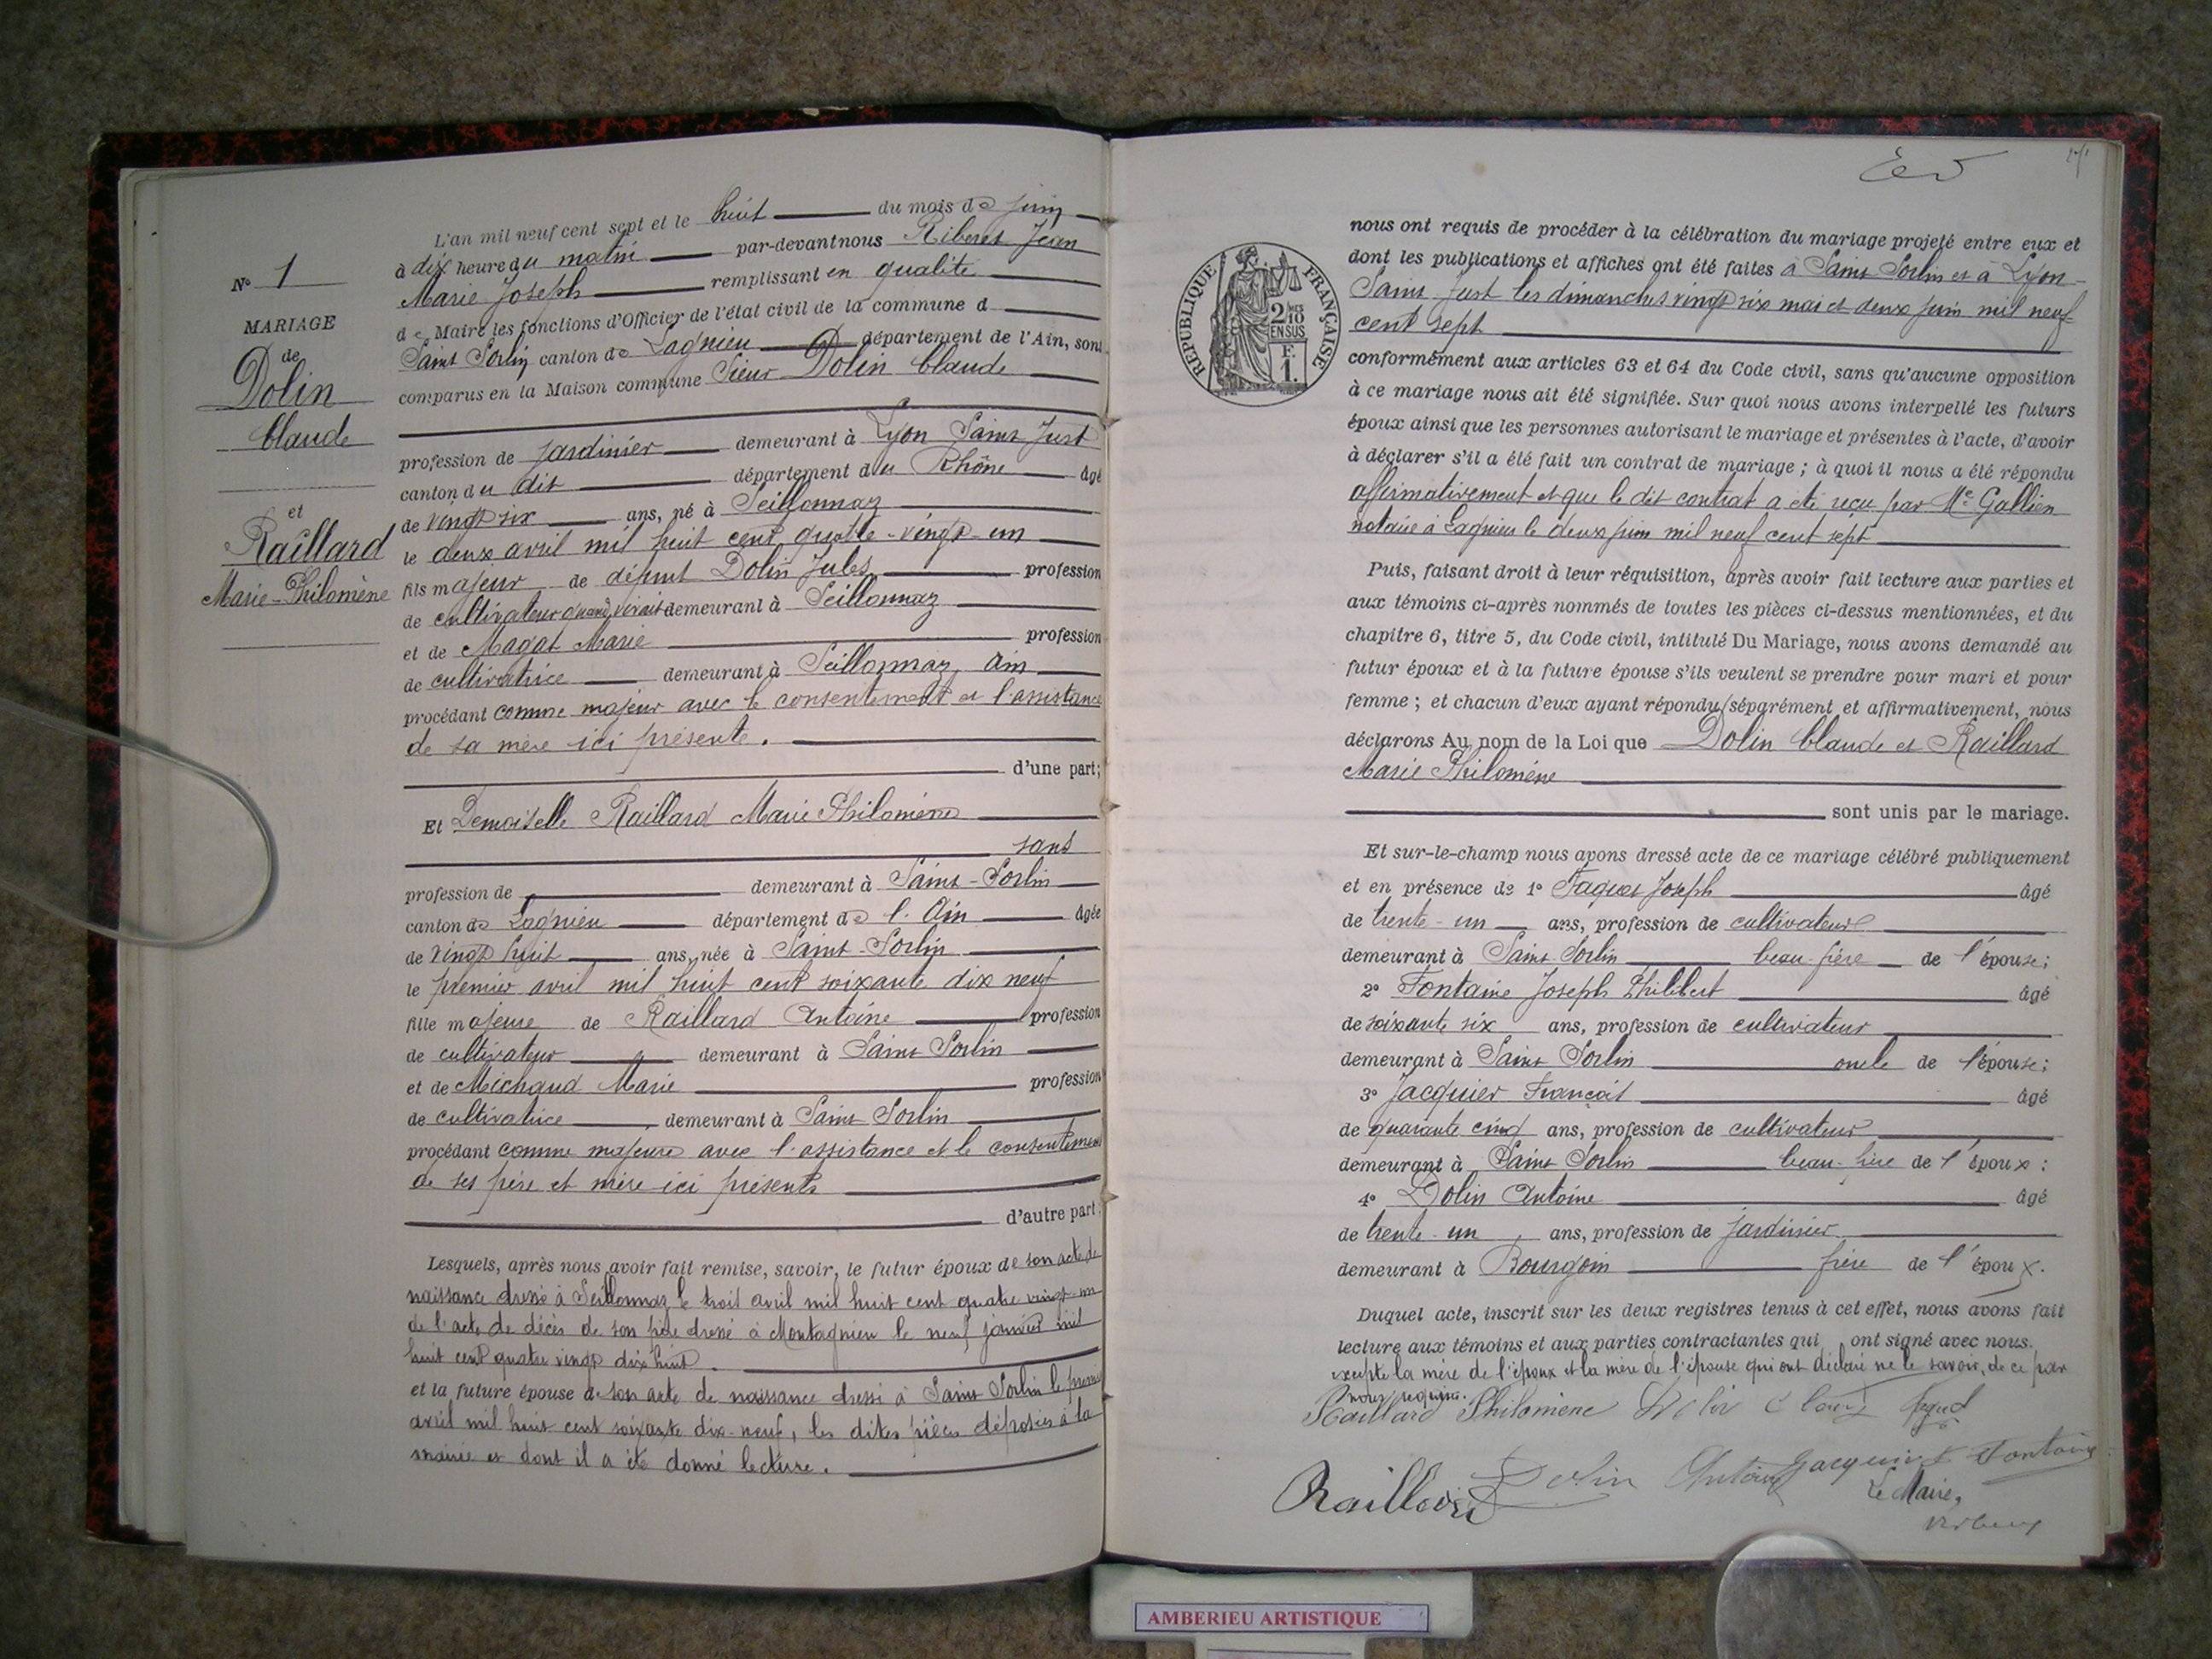 N° 1
MARIAGE
de
Dolin
Claude
et
Raillard
Marie-Philomène
L'an mil neuf cent sept et le huit du mois de juin
à dix heure du matin par-devant nous Riberet Jean
Marie Joseph remplissant en qualité
de Maire les fonctions d'Officier de l'état civil de la commune d
Saint Sorlin canton de Lagnieu département de l'Ain, sont
comparus en la Maison commune Sieur Dolin Claude
profession de jardinier demeurant à Lyon Saint Just
canton du dit département du Rhône âgé
de vingt six ans, né à Seillonnaz
le deux avril mil huit cent quatre-vingt-un
fils majeur de défunt Dolin Jules profession
de cultivateur quand vivait demeurant à Seillonnaz
et de Magat Marie profession
de cultivatrice demeurant à Seillonnaz, Ain
procédant comme majeur avec le consentement et l'assistance
de sa mère ici présente.
d'une part;
Et Demoiselle Raillard Marie Philomène
sans
profession de demeurant à Saint-Sorlin
canton de Lagnieu département de l'Ain âgée
de vingt huit ans, née à Saint-Sorlin
le premier avril mil huit cent soixante dix neuf
fille majeure de Raillard Antoine profession
de cultivateur demeurant à Saint Sorlin
et de Michaud Marie profession
de cultivatrice demeurant à Saint Sorlin
procédant comme majeure avec l'assistance et le consentement
de ses père et mère ici présents
d'autre part.
Lesquels, après nous avoir fait remise, savoir, le futur époux de son acte de
naissance dressé à Seillonnaz le trois avril mil huit cent quatre vingt-un
de l'acte de décès de son père dressé à Montagnieu le neuf janvier mil
huit cent quatre vingt dix huit.
et la future épouse de son acte de naissance dressé à Saint Sorlin le premier
avril mil huit cent soixante dix-neuf, les dites pièces déposées à la
mairie et dont il a été donné lecture.
RÉPUBLIQUE FRANÇAISE
2/10
EN SUS
F.
1.
nous ont requis de procéder à la célébration du mariage projeté entre eux et
dont les publications et affiches ont été faites à Saint Sorlin et à Lyon
Saint Just les dimanches vingt six mai et deux juin mil neuf
cent sept
conformément aux articles 63 et 64 du Code civil, sans qu'aucune opposition
à ce mariage nous ait été signifiée. Sur quoi nous avons interpellé les futurs
époux ainsi que les personnes autorisant le mariage et présentes à l'acte, d'avoir
à déclarer s'il a été fait un contrat de mariage ; à quoi il nous a été répondu
affirmativement et que le dit contrat a été reçu par Me Gallien
notaire à Lagnieu le deux juin mil neuf cent sept
Puis, faisant droit à leur réquisition, après avoir fait lecture aux parties et
aux témoins ci-après nommés de toutes les pièces ci-dessus mentionnées, et du
chapitre 6, titre 5, du Code civil, intitulé Du Mariage, nous avons demandé au
futur époux et à la future épouse s'ils veulent se prendre pour mari et pour
femme ; et chacun d'eux ayant répondu séparément et affirmativement, nous
déclarons Au nom de la Loi que Dolin Claude et Raillard
Marie Philomène
sont unis par le mariage.
Et sur-le-champ nous avons dressé acte de ce mariage célébré publiquement
et en présence de 1° Faquet Joseph âgé
de trente-un ans, profession de cultivateur
demeurant à Saint Sorlin beau-frère de l'épouse;
2° Fontaine Joseph Philibert âgé
de soixante six ans, profession de cultivateur
demeurant à Saint Sorlin oncle de l'épouse;
3° Jacquier François âgé
de quarante cinq ans, profession de cultivateur
demeurant à Saint Sorlin beau-frère de l'époux;
4° Dolin Antoine âgé
de trente-un ans, profession de jardinier
demeurant à Bourgoin frère de l'époux.
Duquel acte, inscrit sur les deux registres tenus à cet effet, nous avons fait
lecture aux témoins et aux parties contractantes qui ont signé avec nous.
excepté la mère de l'époux et la mère de l'épouse qui ont déclaré ne le savoir, de ce par
nous requis.
Raillard Philomène Dolin Claude
Raillard Dolin Antoine Jacquier Fontaine
Le Maire,
AMBERIEU ARTISTIQUE